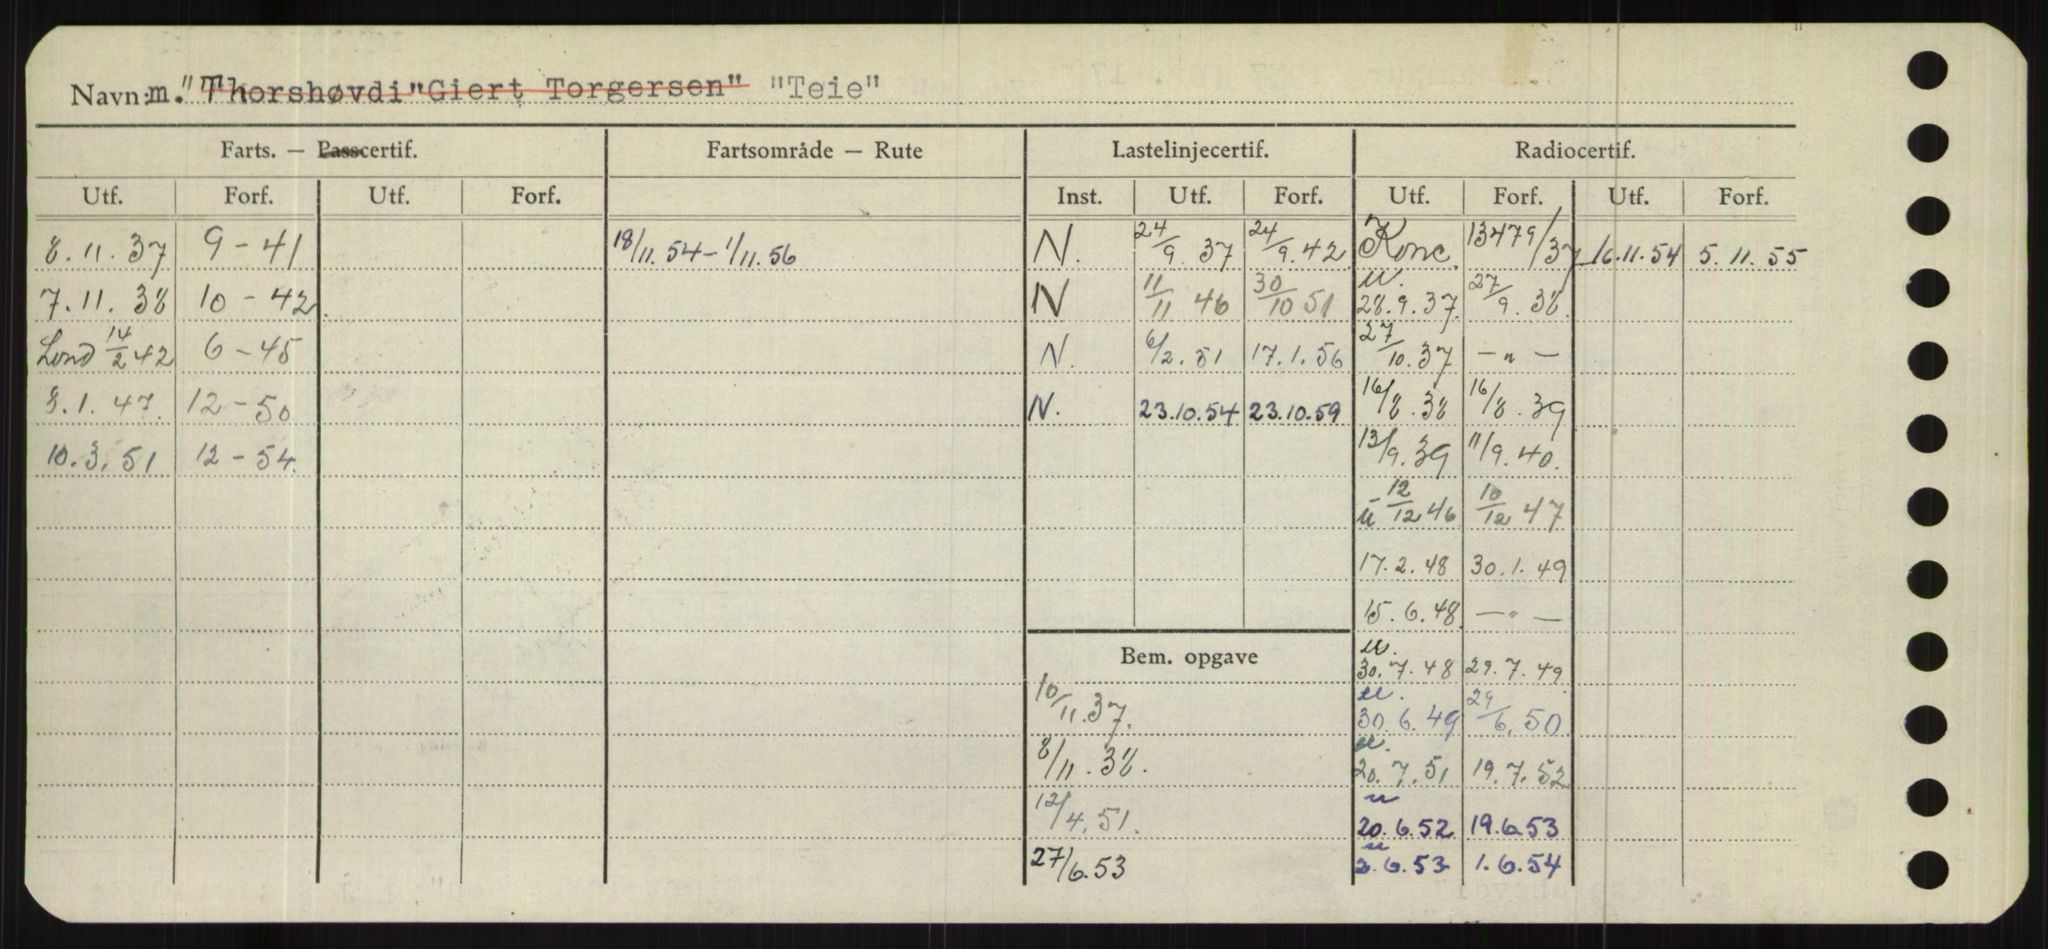 Navn: m. "Thorshøvdi" "Giert Torgersen" "Teie"
Farts. — Passcertif. Fartsområde — Rute Lastelinjecertif. Radiocertif.
Utf. Forf. Utf. Forf. Inst. Utf. Forf. Utf. Forf. Utf. Forf.
8.11.37 9-41 18/11.54-1/11.56 N. 24/9.37 24/9.42 Konc. 13479/37 16.11.54 5.11.55
7.11.38 10-42 N 11/11 46 30/10 51 u. 28.9.37. 27/9.38.
Lond 14/2 42 6-45 N. 6/2.51 17.1.56 27/10.37 — " —
8.1.47. 12-50 N. 23.10.54 23.10.59 16/8.38 16/8.39
10.3.51 12-54. 13/9.39 11/9.40.
u 12/12 46 10/12 47
17.2.48 30.1.49
15.6.48. — " —
Bem. opgave u. 30.7.48 29.7.49.
10/11.37. u. 30.6.49 29/6.50
8/11.38. u. 20.7.51 19.7.52
12/4.51. u 20.6.52 19.6.53
27/6.53 u 2.6.53 1.6.54